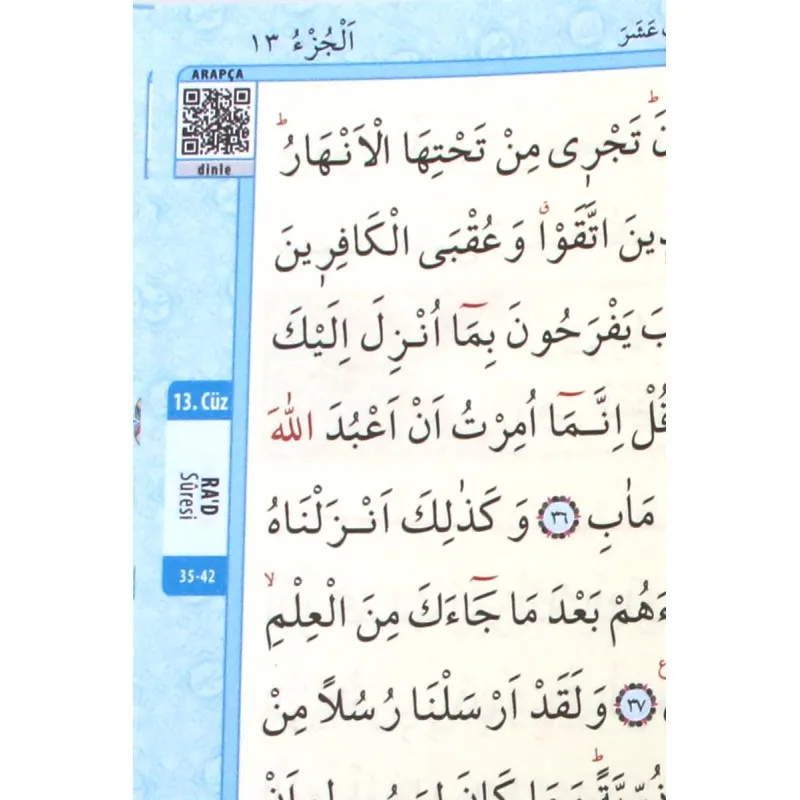 عَشَرَ
اَلْجُزْءُ ١٣
ARAPÇA
dinle
تَجْرٖى مِنْ تَحْتِهَا الْاَنْهَارُ ط
اتَّقَوْا ق وَعُقْبَى الْكَافِرٖينَ
يَفْرَحُونَ بِمَٓا اُنْزِلَ اِلَيْكَ
قُلْ اِنَّمَٓا اُمِرْتُ اَنْ اَعْبُدَ اللّٰهَ
مَاٰبِ ٣٦ وَكَذٰلِكَ اَنْزَلْنَاهُ
بَعْدَ مَا جَٓاءَكَ مِنَ الْعِلْمِ لا
٣٧ وَلَقَدْ اَرْسَلْنَا رُسُلاً مِنْ
13. Cüz
RA'D
Sûresi
35-42